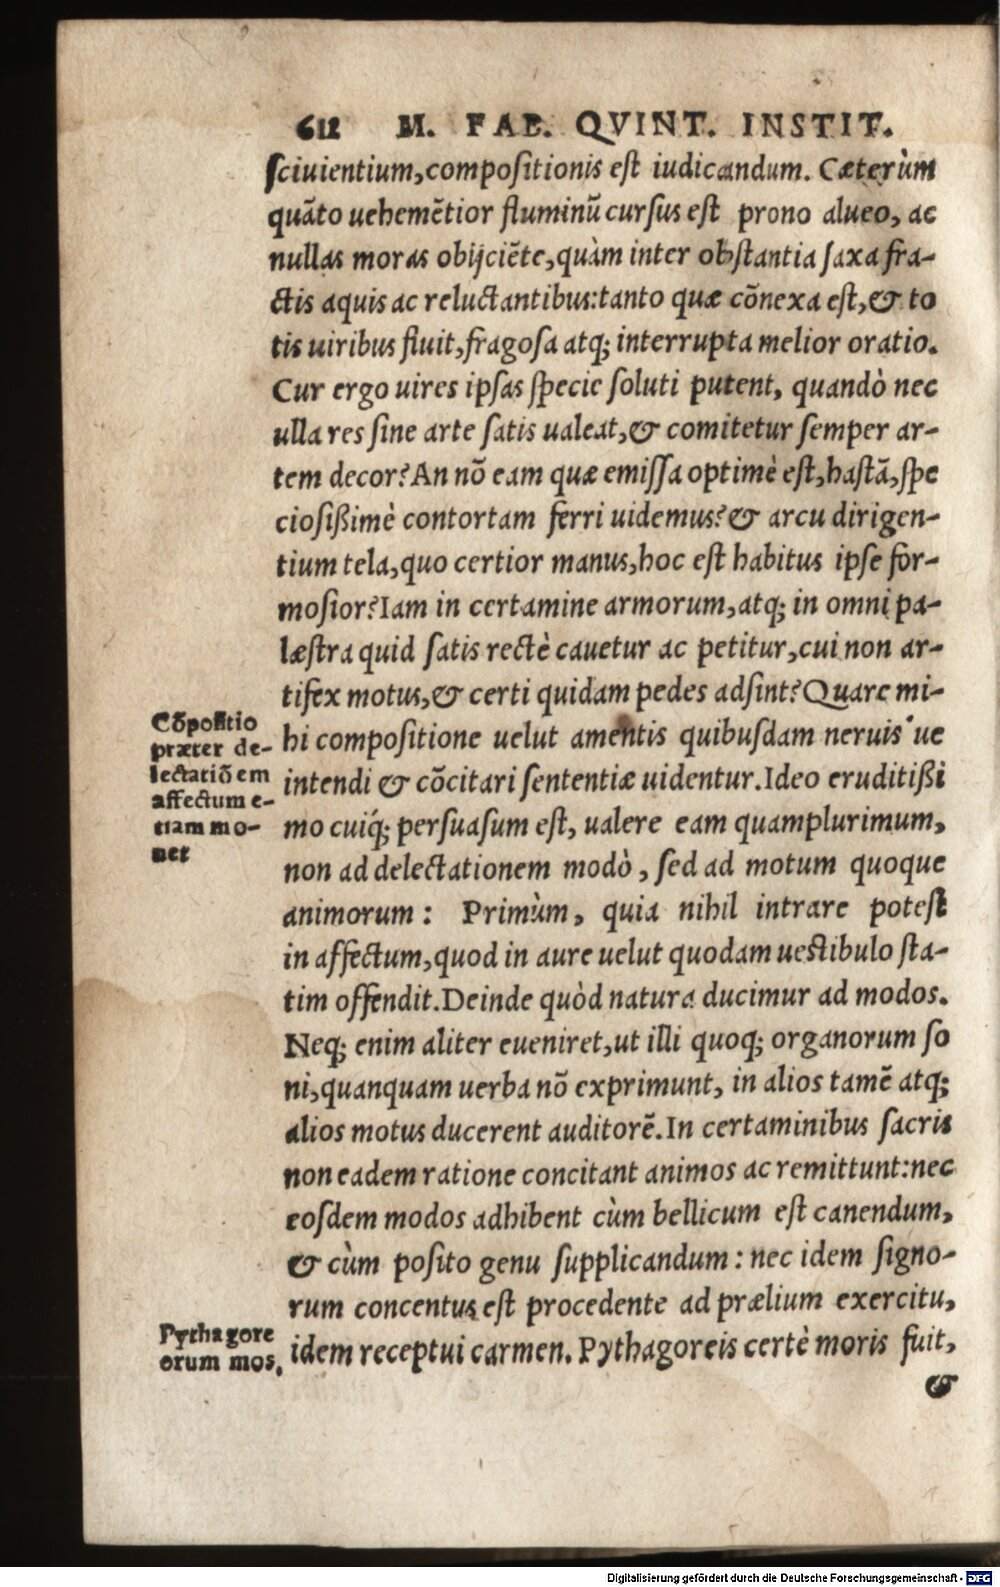 612 M. FAB. QVINT. INSTIT.
sciuientium, compositionis est iudicandum. Cæterùm
quãto uehemẽtior fluminũ cursus est prono alueo, ac
nullas moras obijciẽte, quàm inter obstantia saxa fra-
ctis aquis ac reluctantibus: tanto quæ cõnexa est, & to
tis uiribus fluit, fragosa atq; interrupta melior oratio.
Cur ergo uires ipsas specie solui putent, quandò nec
ulla res sine arte satis ualeat, & comitetur semper ar-
tem decor? An nõ eam quæ emissa optimè est, hastã, spe
ciosißimè contortam ferri uidemus? & arcu dirigen-
tium tela, quo certior manus, hoc est habitus ipse for-
mosior? Iam in certamine armorum, atq; in omni pa-
læstra quid satis rectè cauetur ac petitur, cui non ar-
tifex motus, & certi quidam pedes adsint? Quare mi-
hi compositione uelut amentis quibusdam neruis ue
intendi & cõcitari sententiæ uidentur. Ideo eruditißi
mo cuiq́; persuasum est, ualere eam quamplurimum,
non ad delectationem modò, sed ad motum quoque
animorum: Primùm, quia nihil intrare potest
in affectum, quod in aure uelut quodam uestibulo sta-
tim offendit. Deinde quòd natura ducimur ad modos.
Neq; enim aliter eueniret, ut illi quoq; organorum so
ni, quanquam uerba nõ exprimunt, in alios tamẽ atq;
alios motus ducerent auditorẽ. In certaminibus sacris
non eadem ratione concitant animos ac remittunt: nec
eosdem modos adhibent cùm bellicum est canendum,
& cùm posito genu supplicandum: nec idem signo-
rum concentus est procedente ad prælium exercitu,
idem receptui carmen. Pythagoreis certè moris fuit,
&
Cõpositio
præter de-
lectatiõem
affectum e-
tiam mo-
uet
Pythagore
orum mos.
Digitalisierung gefördert durch die Deutsche Forschungsgemeinschaft - DFG